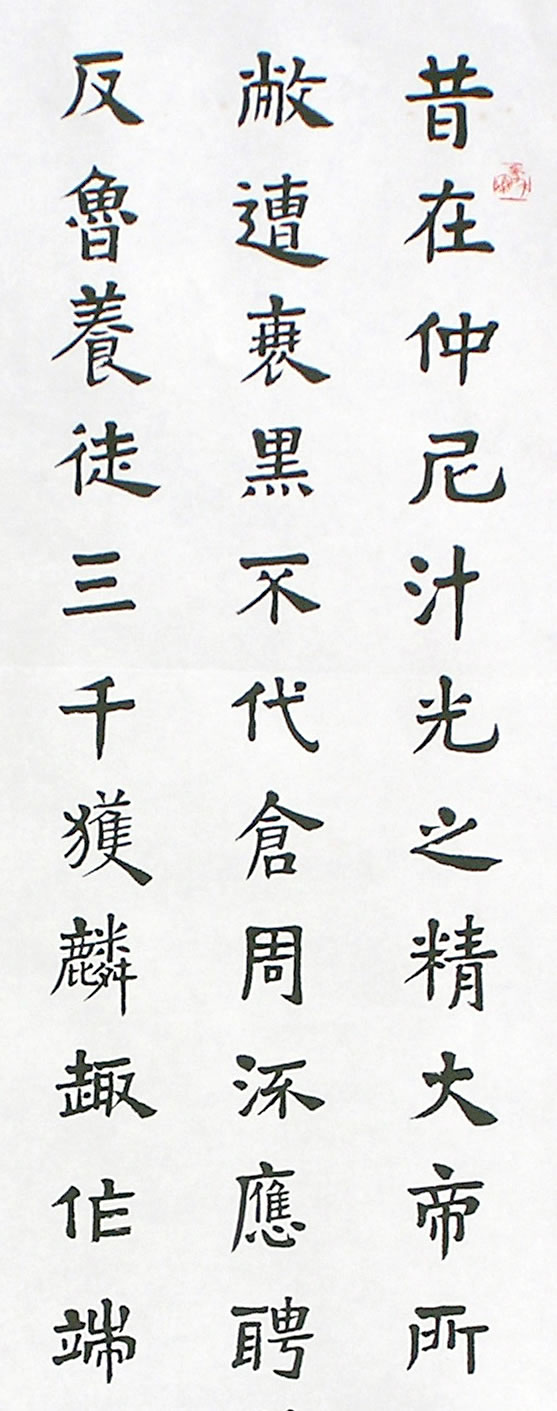 昔在仲尼汁光之精大帝所
敝遭衰黑不代倉周流應聘
反魯養徒三千獲麟趣作端